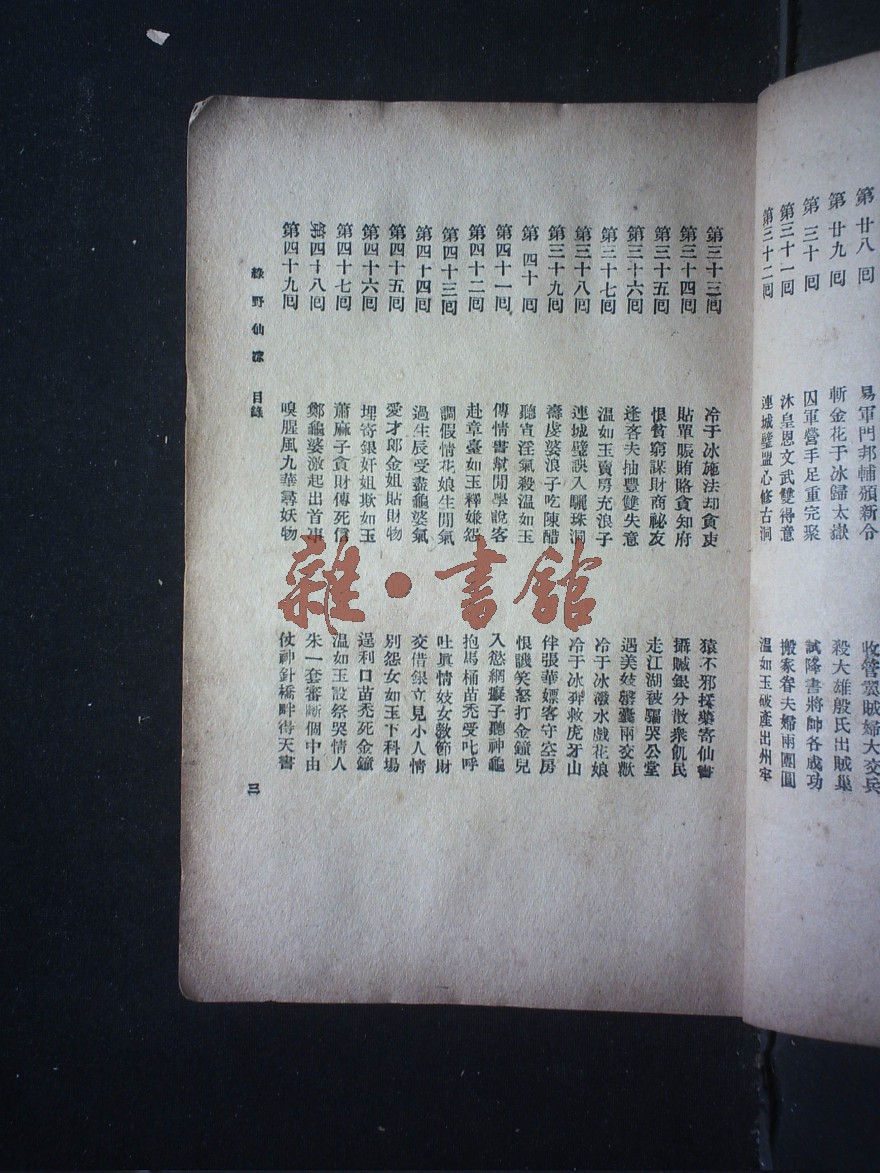 第廿八囘 易軍門邦輔頒新令 收管翼賊婦大交兵
第廿九囘 斬金花于冰歸太嶽 殺大雄殷氏出賊巢
第三十囘 囚軍營手足重完聚 試降書將帥各成功
第三十一囘 沐皇恩文武雙得意 搬家眷夫婦兩團圓
第三十二囘 連城璧盟心修古洞 溫如玉破產出州牢
第三十三囘 冷于冰施法却貪吏 猿不邪採藥寄仙書
第三十四囘 貼單賬賄賂貪知府 攝贓銀分散衆飢民
第三十五囘 恨貧窮謀財商祕友 走江湖被騙哭公堂
第三十六囘 逢吝夫抽豐雙失意 遇美妓罄囊兩交歡
第三十七囘 溫如玉賣房充浪子 冷于冰潑水戲花娘
第三十八囘 連城璧誤入驪珠洞 冷于冰奔救虎牙山
第三十九囘 壽虔婆浪子吃陳醋 伴張華嫖客守空房
第四十囘 聽宣淫氣殺溫如玉 恨譏笑怒打金鐘兒
第四十一囘 傳情書幫閒學說客 入慾網癡子聽神龜
第四十二囘 赴章臺如玉釋嫌怨 抱馬桶苗禿受叱呼
第四十三囘 調假情花娘生閒氣 吐眞情妓女敎節財
第四十四囘 過生辰受盡龜婆氣 交借銀立見小人情
第四十五囘 愛才郎金姐貼財物 別怨女如玉下科場
第四十六囘 埋寄銀奸姐欺如玉 逞利口苗禿死金鐘
第四十七囘 蕭麻子貪財傳死信 溫如玉設祭哭情人
第四十八囘 鄭龜婆激起出首事 朱一套審斷個中由
第四十九囘 嗅腥風九華尋妖物 仗神針橋畔得天書
綠野仙踪 目錄 三
雜·書館